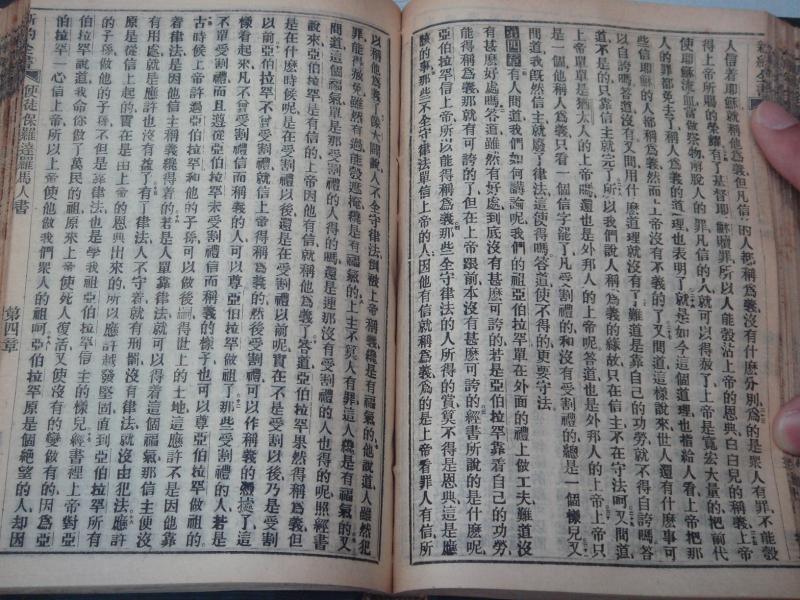 新約全書
人信着耶穌就稱他爲義但凡信的人都稱爲義沒有什麽分別爲的是衆人有罪不能彀
上帝所賜的榮耀有了基督耶穌贖罪所以人能彀沾上帝的恩典白白兒的稱義上帝
使耶穌流血當做祭物開脫人的罪凡信的人就可以得赦了上帝是寬宏大量的把前代
人的罪都免去了稱人爲義的道理也表明了就是如今這個道理也指給人看上帝把那
些信耶穌的人都稱爲義然而上帝沒有不義的了又問道這樣說來世人還有什麽事可
以自誇嗎答道沒有又問用什麽道理就沒有了難道是靠自己的功勞就不得自誇嗎答
道不是的只靠信主就完了所以我們說人稱爲義的緣故只在信主不在守法呵又問道
上帝單單是猶太人的上帝嗎還也是外邦人的上帝呢答道也是外邦人的上帝上帝只
是一個他稱人爲義只看一個信字罷了凡受割禮的和沒有受割禮的總是一個樣兒又
問道我旣然信主就廢了律法這使得嗎答道使不得的更要守法
第四章有人問道我們如何講論呢我們的祖亞伯拉罕單在外面的禮上做工夫難道沒
有甚麽好處嗎答道雖然有好處到底沒有甚麽可誇的若是亞伯拉罕靠着自己的功勞
能得稱爲義那就有可誇的了但在上帝跟前本沒有甚麽可誇的經書所說的是什麽呢
亞伯拉罕信上帝所以能得稱爲義那些全守律法的人所得的賞莫不得是恩典這是應
該的事那些不全守律法單信上帝的人因他有信就稱爲義爲的是上帝看罪人有信所
以稱他爲義了像大闢說人不全守律法倒被上帝稱義纔是有福氣的他說道人雖然犯
罪能得赦免雖然有過能彀遮淹纔是有福氣的上主不算人有罪這人纔是有福氣的又
問道這個福氣單是那受割禮的人得的嗎還是連那沒有受割禮的人也得的呢照經書
說來亞伯拉罕是有信的上帝因他有信就稱他爲義了答道亞伯拉罕果然得稱爲義但
是在什麽時候呢是在受割禮以後還是在受割禮以前呢實在不是受割以後乃是受割
以前亞伯拉罕不曾受割禮就信上帝得稱爲義的然後受割禮可以作稱義的憑據了這
樣看起來凡不曾受割禮而稱義的人可以尊亞伯拉罕做祖了那些受割禮的人若是
不單受割禮而且遵從亞伯拉罕未受割禮信而稱義的樣子也可以尊亞伯拉罕做祖的
古時候上帝許過亞伯拉罕和他的子孫可以做後嗣得世上的土地這應許不是因他靠
着律法是因他信主稱義纔得着的若是人單靠律法就可以得着這個福氣那信主便沒
有用處就是應許也沒有益了有了律法人不守着就有刑罰沒有律法就沒由犯法應許
原是從信上起的實在是由上帝的恩典出來的所以應許越發堅固直到亞伯拉罕所有
的子孫做他的子孫不但是靠律法也是學我祖亞伯拉罕信主的樣兒經書裡上帝對亞
伯拉罕說道我命你做了萬民的祖原來上帝使死人復活又使沒有的變做有的因爲亞
伯拉罕一心信上帝所以上帝使他做我們衆人的祖呵亞伯拉罕原是個絕望的人却因
新約全書 使徒保羅達羅馬人書 第四章